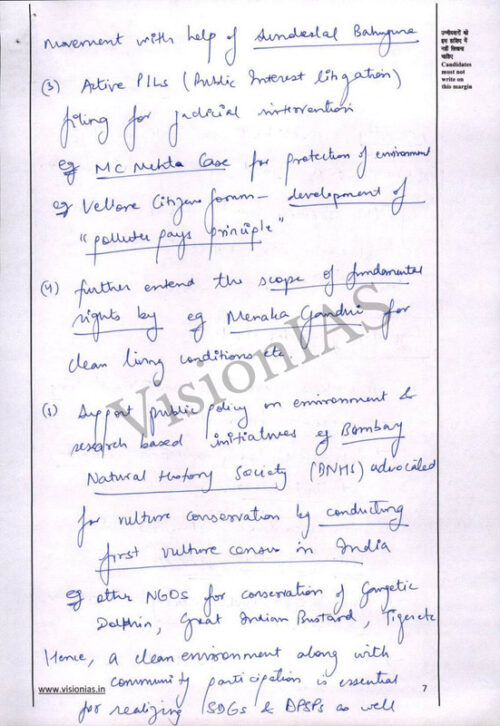 movement with help of Sunderlal Bahuguna
(3) Active PILs (Public Interest litigation)
filing for judicial intervention
eg MC Mehta Case for protection of environment
eg Vellore Citizens forum – development of
"polluter pays principle"
(4) further extend the scope of fundamental
rights by eg Menaka Gandhi for
clean living conditions etc.
Support public policy on environment &
research based initiatives eg Bombay
Natural History Society (BNHS) advocated
for vulture conservation by conducting
first vulture census in India
eg other NGOs for conservation of Gangetic
Dolphin, Great Indian Bustard, Tiger etc
Hence, a clean environment along with
community participation is essential
for realizing SDGs & DPSPs as well
उम्मीदवारों को
इस हाशिए में
नहीं लिखना
चाहिए
Candidates
must not
write on
this margin
VisionIAS
www.visionias.in
7